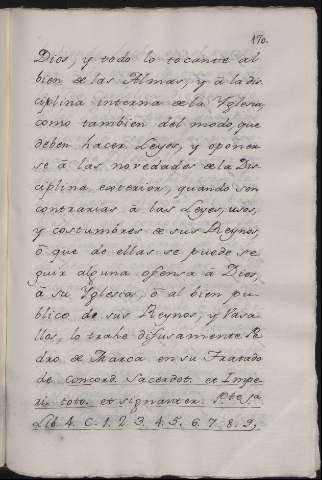 170.
Dios, y todo lo tocante al
bien de las Almas, y à la dis
ciplina interna de la Yglesia,
como tambien del modo, que
deben hacer Leyes, y oponer
se à las novedades de la Dis
ciplina exterior, quando son
contrarias à las Leyes, usos,
y costumbres de sus Reynos,
ò que de ellas se puede se
guir alguna ofensa à Dios,
à su Yglesia, ò al bien pu-
blico de sus Reynos, y Vasa
llos, lo trahe difusamente Pe
dro de Marca en su Tratado
de concord. Sacerdot. et Impe
rij toto. et signanter.
Lib 4. C. 1. 2. 3. 4. 5. 6. 7. 8. 9,